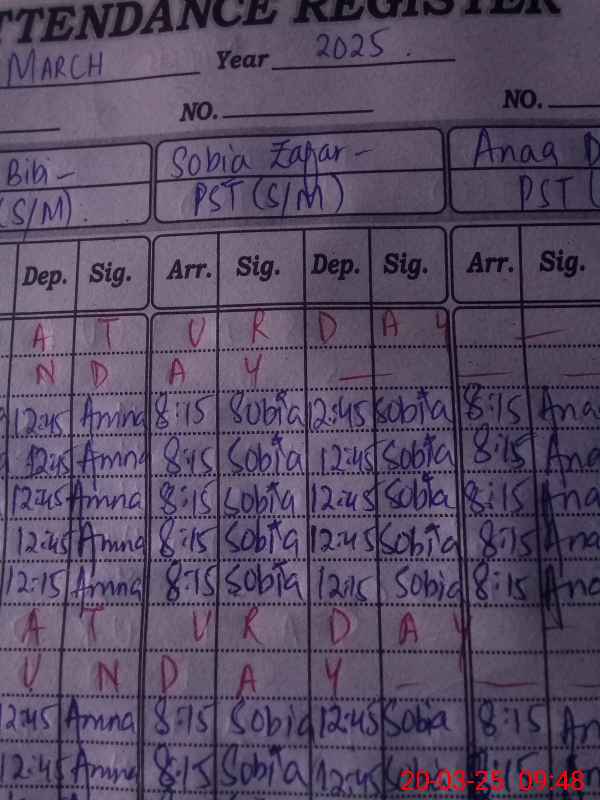 ATTENDANCE REGISTER
MARCH Year 2025.
NO. NO.
Bibi - Sobia Zafar - Anaa
(S/M). PST (S/M) PST (
Dep. Sig. Arr. Sig. Dep. Sig. Arr. Sig.
A T U R D A Y —
N D A Y — — —
12:45 Amna 8:15 Sobia 12:45 Sobia 8:15 Ana
12:45 Amna 8:15 Sobia 12:45 Sobia 8:15 Ana
12:45 Amna 8:15 Sobia 12:45 Sobia 8:15 Ana
12:45 Amna 8:15 Sobia 12:45 Sobia 8:15 Ana
12:15 Amna 8:15 Sobia 12:15 Sobia 8:15 Ana
A T U R D A Y
U N D A Y — — —
12:45 Amna 8:15 Sobia 12:45 Sobia 8:15 An
12:45 Amna 8:15 Sobia 12:45 Sobia 8:15 An
20-03-25 09:48